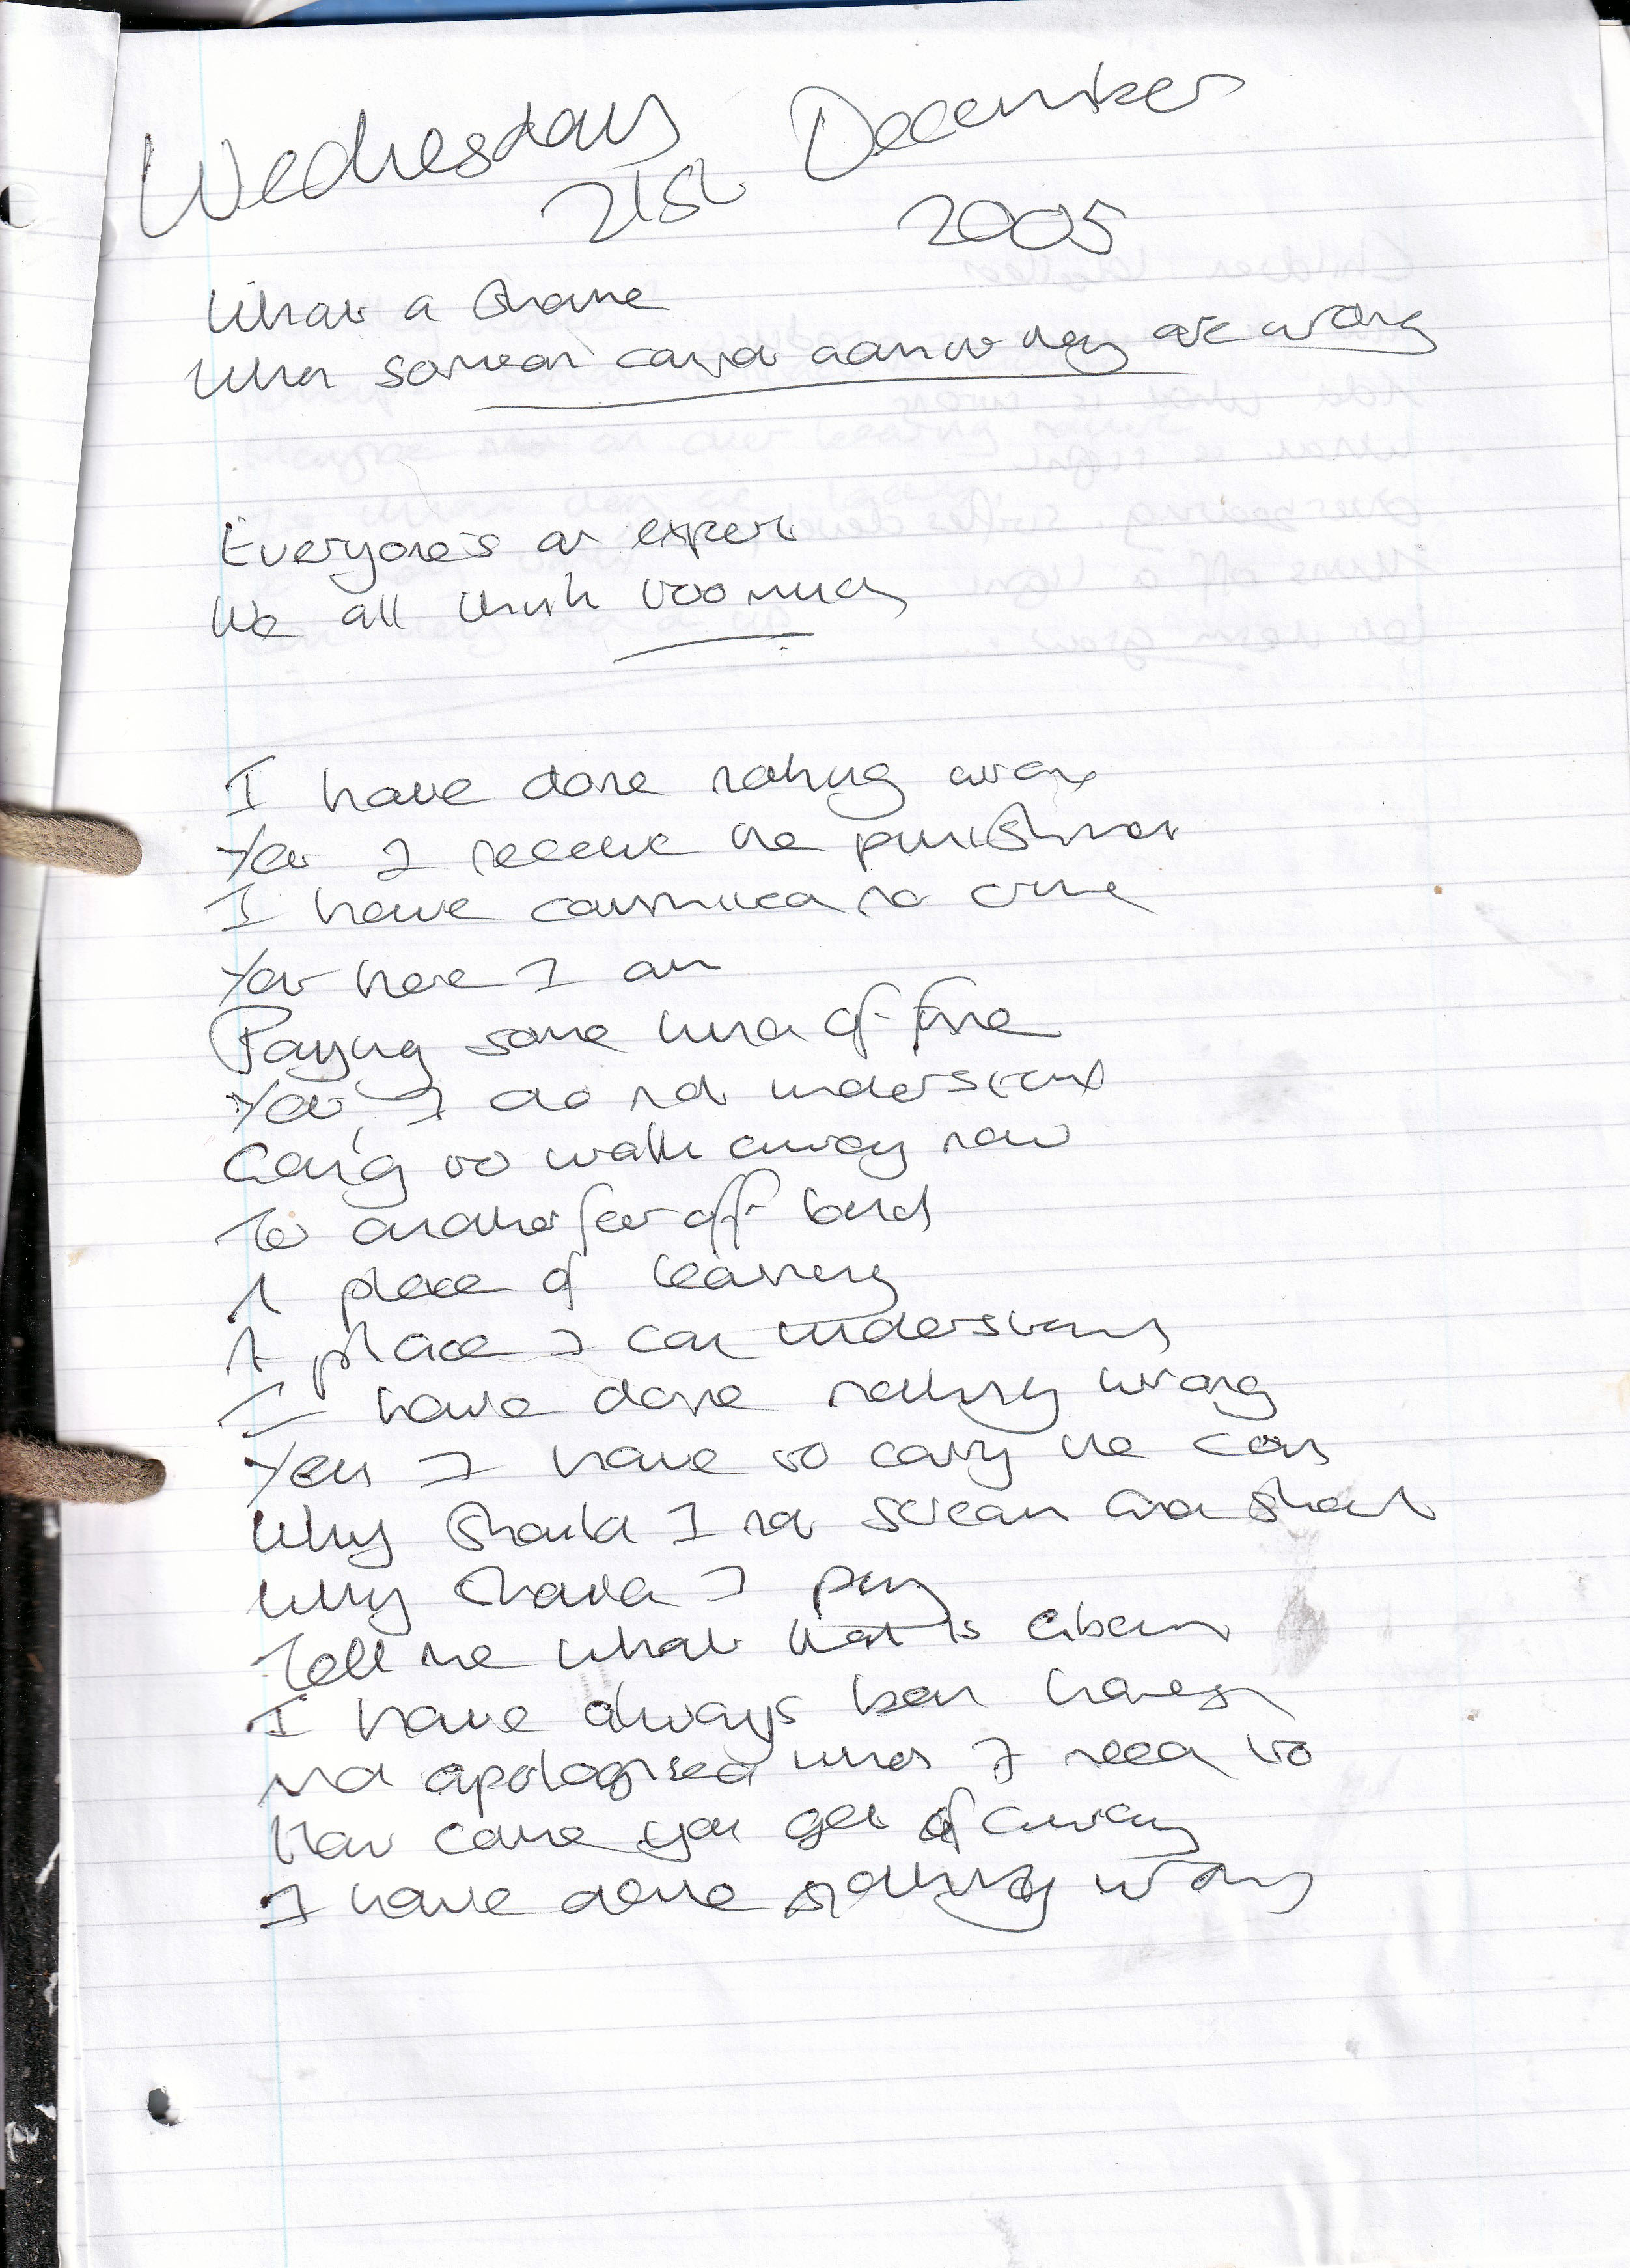 Wednesday
21st December
2005
What a shame
When someone cannot admit they are wrong
Everyone's an expert
We all think too much
I have done nothing wrong
Yet I receive the punishment
I have committed no crime
Yet here I am
Paying some kind of fine
Yet I do not understand
Going to walk away now
To another far off land
A place of learning
A place I can understand
I have done nothing wrong
Yet I have to carry the can
Why should I not scream and shout
Why should I pay
Tell me what that is about
I have always been honest
And apologised when I need to
How come you get off away
I have done nothing wrong